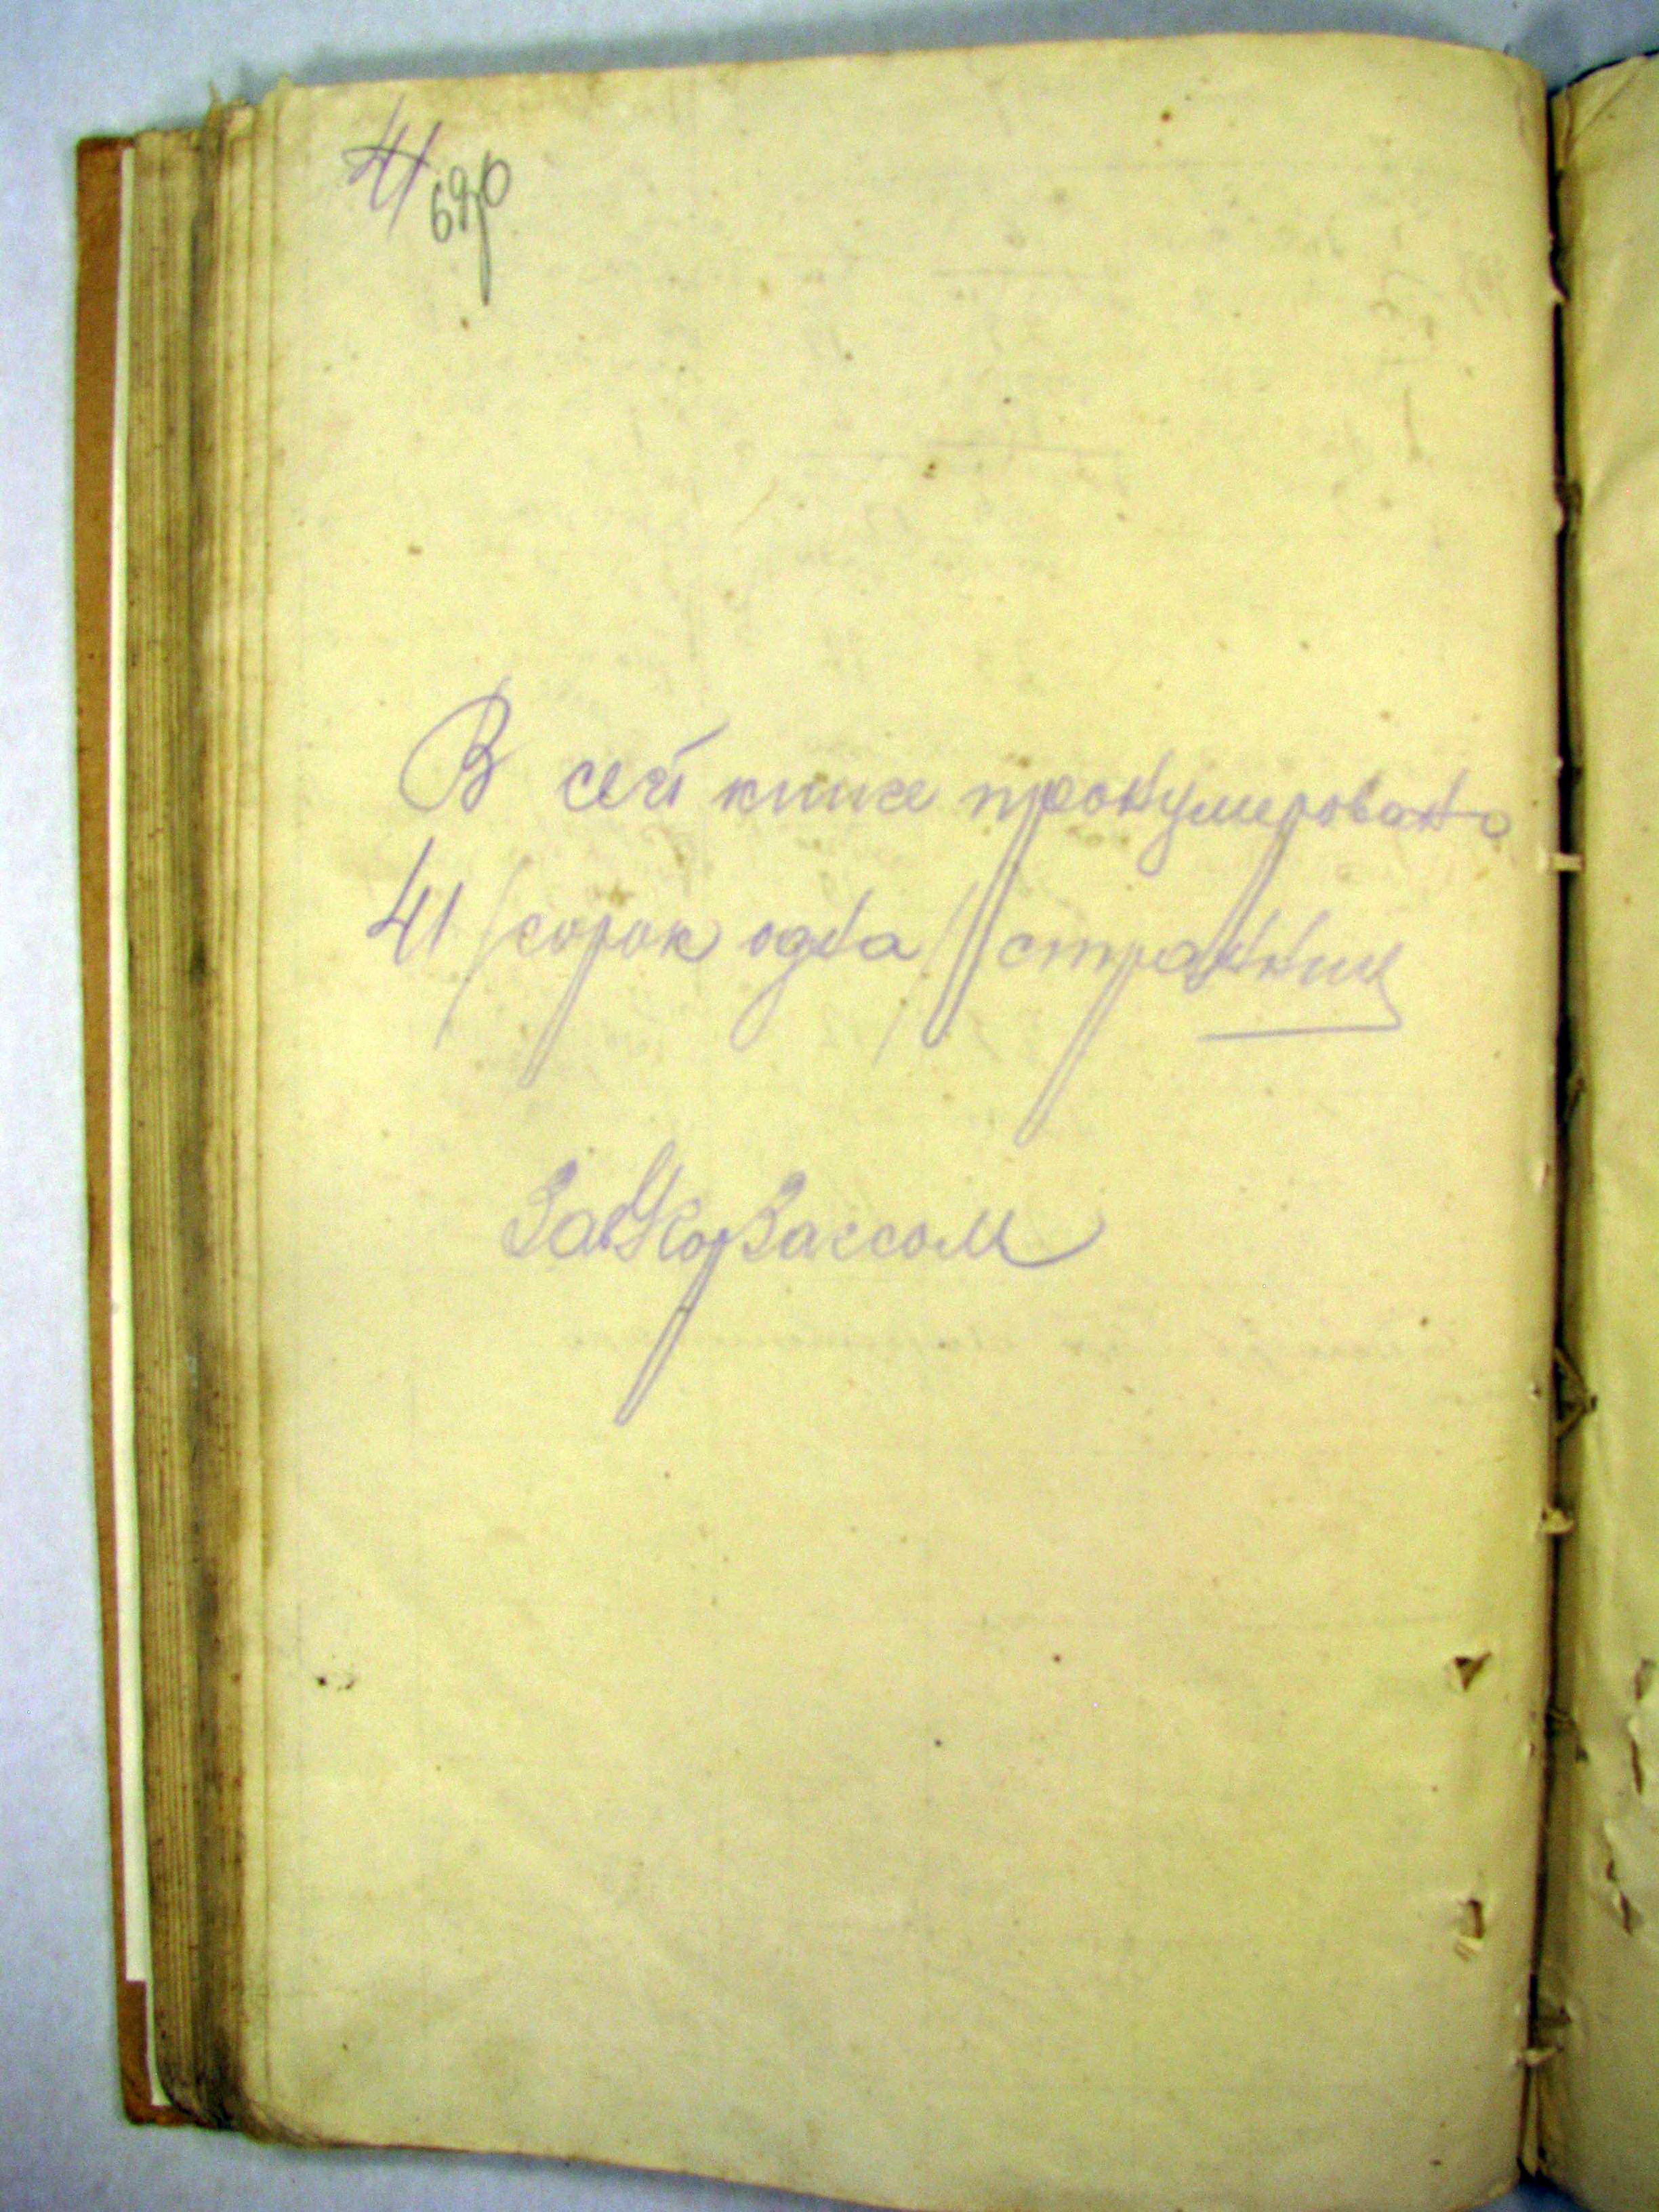 41
69об
В сей книге пронумеровано
41 /сорок одна/ страниц